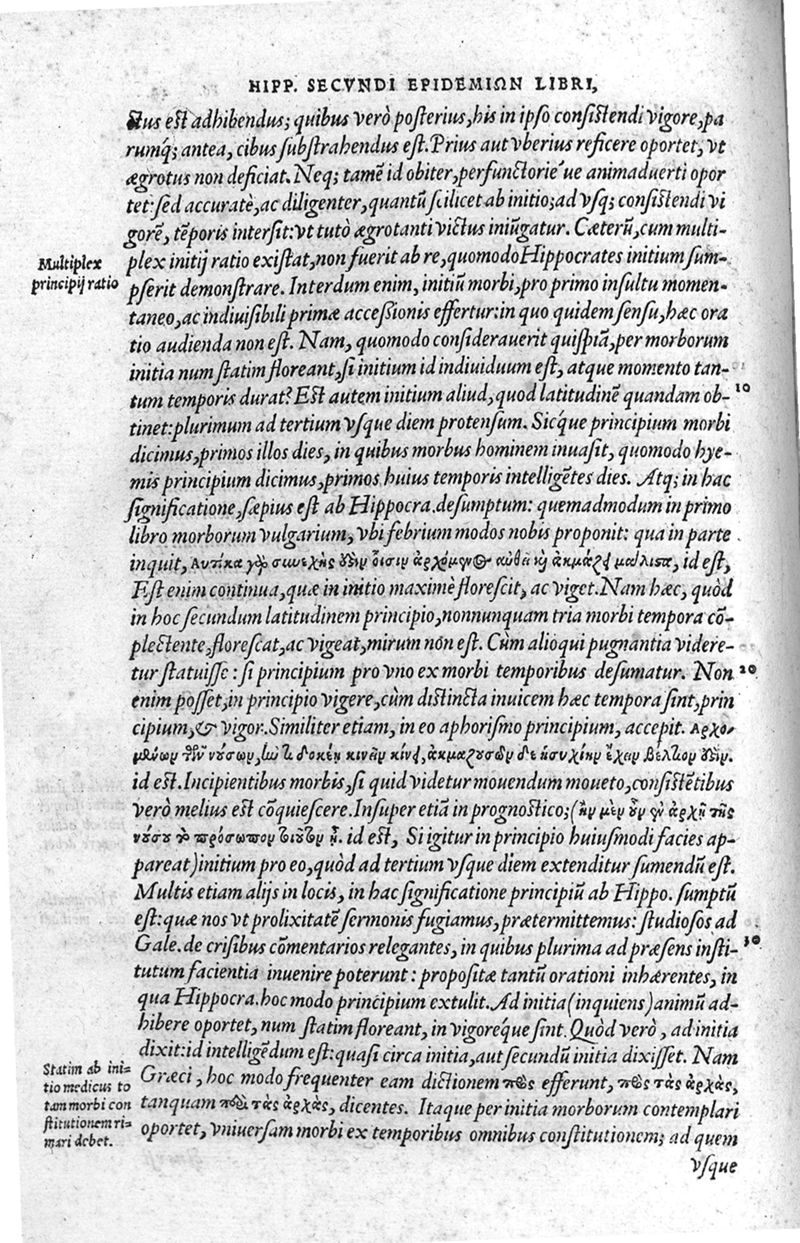 HIPP. SECVNDI EPIDEMIΩN LIBRI,
ctus est adhibendus; quibus verò posterius, his in ipso consistendi vigore, pa
rumq; antea, cibus substrahendus est. Prius aut vberius reficere oportet, vt
ægrotus non deficiat. Neq; tamē id obiter, perfunctorie´ue animaduerti opor
tet: sed accuratè, ac diligenter, quantū scilicet ab initio; ad vsq; consistendi vi
gorē, tēporis intersit: vt tutò ægrotanti victus iniūgatur. Cæterū, cum multi-
Multiplex
principij ratio
plex initij ratio existat, non fuerit ab re, quomodo Hippocrates initium sum-
pserit demonstrare. Interdum enim, initiū morbi, pro primo insultu momen-
taneo, ac indiuisibili primæ accessionis effertur: in quo quidem sensu, hæc ora
tio audienda non est. Nam, quomodo considerauerit quispiā, per morborum
initia num statim floreant, si initium id indiuiduum est, atque momento tan-
tum temporis durat? Est autem initium aliud, quod latitudinē quandam ob-
10
tinet: plurimum ad tertium vsque diem protensum. Sicq́ue principium morbi
dicimus, primos illos dies, in quibus morbus hominem inuasit, quomodo hye-
mis principium dicimus, primos huius temporis intelligētes dies. Atq; in hac
significatione, sæpius est ab Hippocra. desumptum: quemadmodum in primo
libro morborum vulgarium, vbi febrium modos nobis proponit: qua in parte
inquit, id est,
Est enim continua, quæ in initio maximè florescit, ac viget. Nam hæc, quòd
in hoc secundum latitudinem principio, nonnunquam tria morbi tempora cō-
plectente, florescat, ac vigeat, mirum non est. Cùm alioqui pugnantia videre-
tur statuisse: si principium pro vno ex morbi temporibus desumatur. Non
20
enim posset, in principio vigere, cùm distincta inuicem hæc tempora sint, prin
cipium, & vigor. Similiter etiam, in eo aphorismo principium, accepit. Αρχο/
μθύωρ τῶν νούσωρ, δοκέη κινᾶν κίνει, ἀκμαζουσῶν δε ἡσυχίην ἔχαν βέλτιον
id est. Incipientibus morbis, si quid videtur mouendum moueto, consistētibus
verò melius est cōquiescere. Insuper etiā in prognostico; (ἢν μὲν οὖν ἐν ἀρχῇ τῆς
νούσου τὸ πρόσωπον τοιοῦτον ᾖ. id est, Si igitur in principio huiusmodi facies ap-
pareat) initium pro eo, quòd ad tertium vsque diem extenditur sumendū est.
Multis etiam alijs in locis, in hac significatione principiū ab Hippo. sumptū
est: quæ nos vt prolixitatē sermonis fugiamus, prætermittemus: studiosos ad
Gale. de crisibus cōmentarios relegantes, in quibus plurima ad præsens insti-
30
tutum facientia inuenire poterunt: propositæ tantū orationi inhærentes, in
qua Hippocra. hoc modo principium extulit. Ad initia (inquiens) animū ad-
hibere oportet, num statim floreant, in vigoreq́ue sint. Quòd verò, ad initia
dixit: id intelligēdum est: quasi circa initia, aut secundū initia dixisset. Nam
Statim ab ini-
tio medicus to
tam morbi con
stitutionem ri-
mari debet.
Græci, hoc modo frequenter eam dictionem πρὸς efferunt, πρὸς τὰς ἀρχὰς,
tanquam περὶ τὰς ἀρχὰς, dicentes. Itaque per initia morborum contemplari
oportet, vniuersam morbi ex temporibus omnibus constitutionem; ad quem
vsque